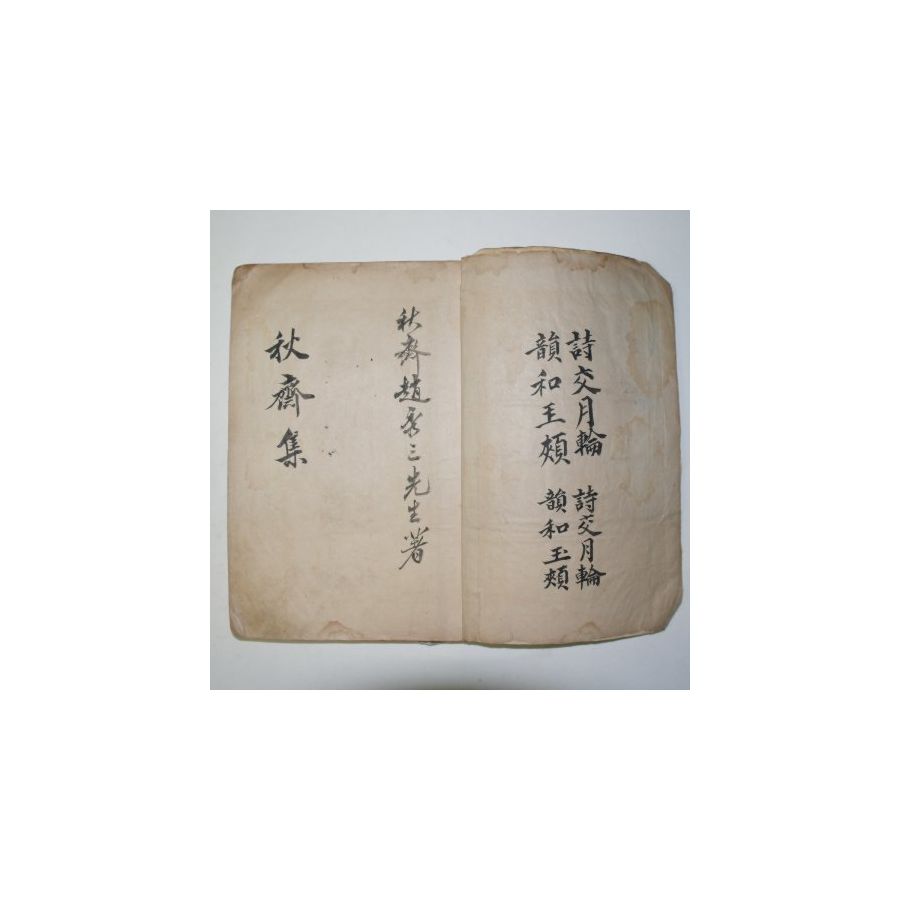 詩交月輪 詩交月輪
韻和玉頰 韻和玉頰
秋齋趙秀三先生著
秋齋集